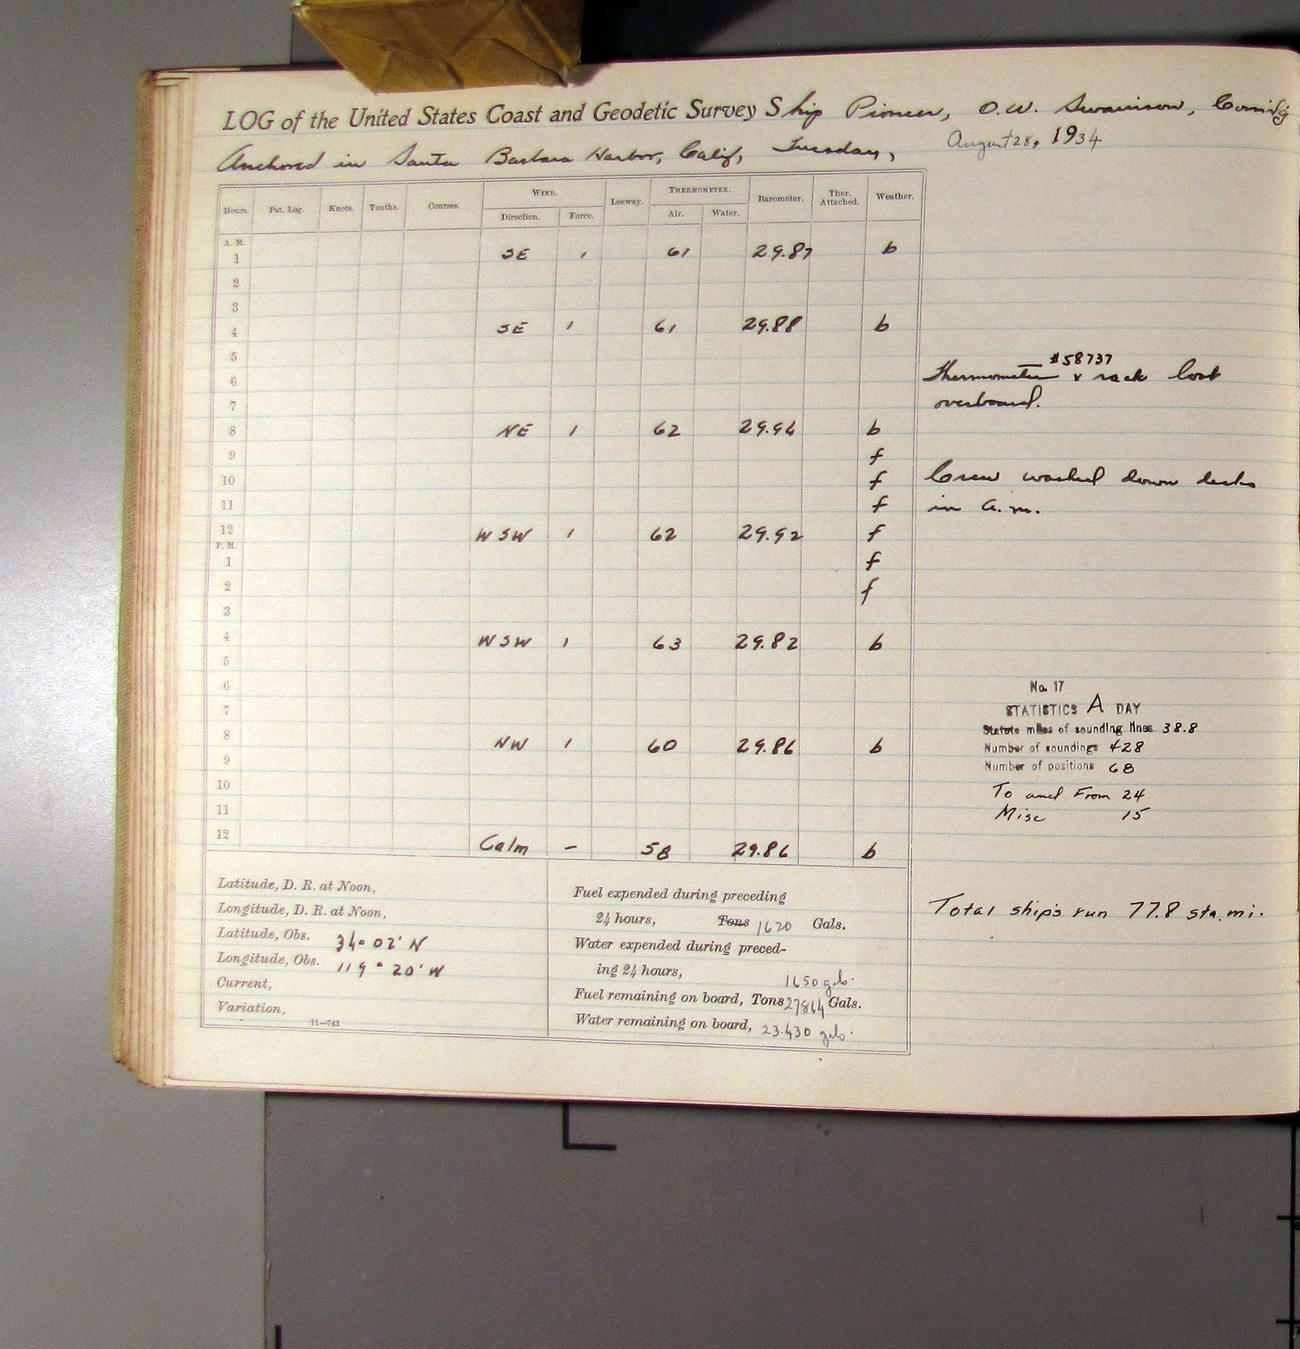 LOG of the United States Coast and Geodetic Survey Ship Pioneer, O.W. Swainson, Comd'g
Anchored in Santa Barbara Harbor, Calif, Tuesday, August 28, 1934
Hours. Pat. Log. Knots. Tenths. Courses. WIND. Leeway. THERMOMETER. Barometer. Ther. Attached. Weather.
Direction. Force. Air. Water.
A. M.
1 SE 1 61 29.87 b
2
3
4 SE 1 61 29.88 b
5
#58737
6 Thermometer & rack lost
7 overboard.
8 NE 1 62 29.94 b
9 f
10 f Crew washed down decks
11 f in a.m.
12 WSW 1 62 29.92 f
P. M.
1 f
2 f
3
4 WSW 1 63 29.82 b
5
6
7
8 NW 1 60 29.86 b
9
10
11
12 Calm – 58 29.86 b
No. 17
STATISTICS A DAY
Statute miles of sounding lines 38.8
Number of soundings 428
Number of positions 68
To and From 24
Misc 15
Total ship's run 77.8 sta. mi.
Latitude, D. R. at Noon,
Longitude, D. R. at Noon,
Latitude, Obs. 34° 02' N
Longitude, Obs. 119° 20' W
Current,
Variation,
11—763
Fuel expended during preceding
24 hours, Tons 1620 Gals.
Water expended during preced-
ing 24 hours, 1650 gals.
Fuel remaining on board, Tons 27864 Gals.
Water remaining on board, 23.430 gals.